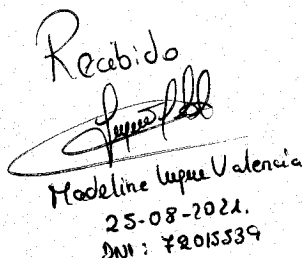 Recibido
Madeline Luque Valencia
25-08-2021.
DNI: 72015539